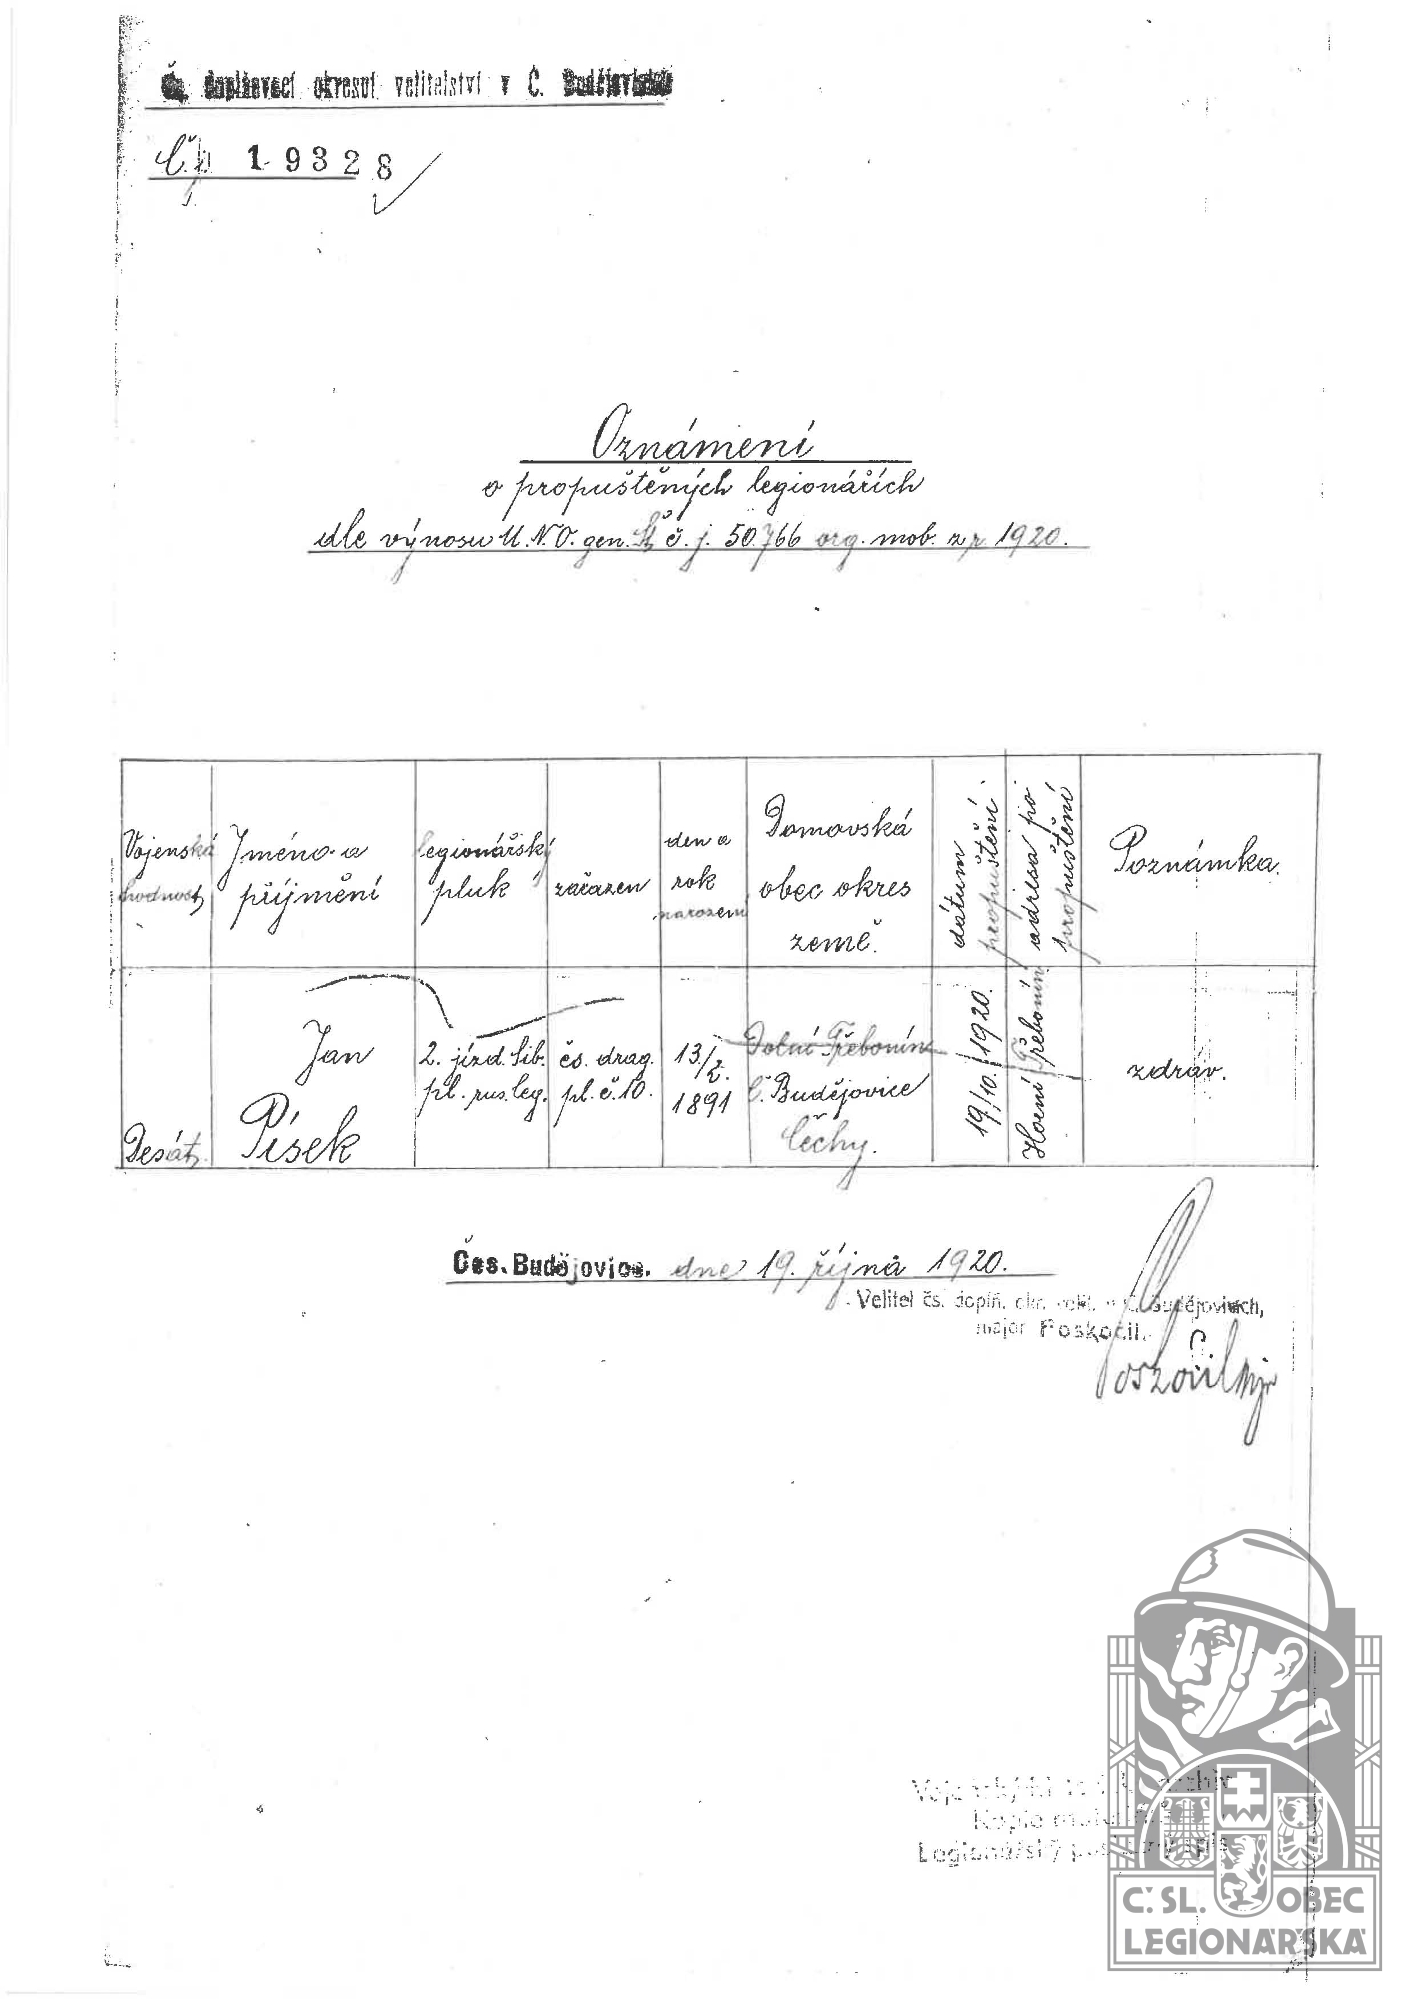 Čs. doplňovací okresní velitelství v Č. Budějovicích
Č.j. 19328
Oznámení
o propuštěných legionářích
dle výnosu M.N.O. gen. Št. č. j. 50.766 org. mob. z r. 1920.
Vojenská hodnost
Jméno a příjmění
legionářský pluk
začazen
den a rok narození
Domovská obec okres země.
dátum propuštění
adresa po propuštění
Poznámka.
Desát.
Jan Písek
2. jízd. Sib. pl. rus. leg.
čs. drag. pl. č. 10.
13/2. 1891
Dolní Třebonín
Č. Budějovice
Čechy.
19/10. 1920.
Horní Třebonín
zdráv.
Čes. Budějovice. dne 19. října 1920.
Velitel čs. doplň. okr. velit. v Č. Budějovicích,
major Poskočil.
Poskočil mjr
Vojenský archiv
Kopie
Legionářský
Č. SL. OBEC
LEGIONÁŘSKÁ